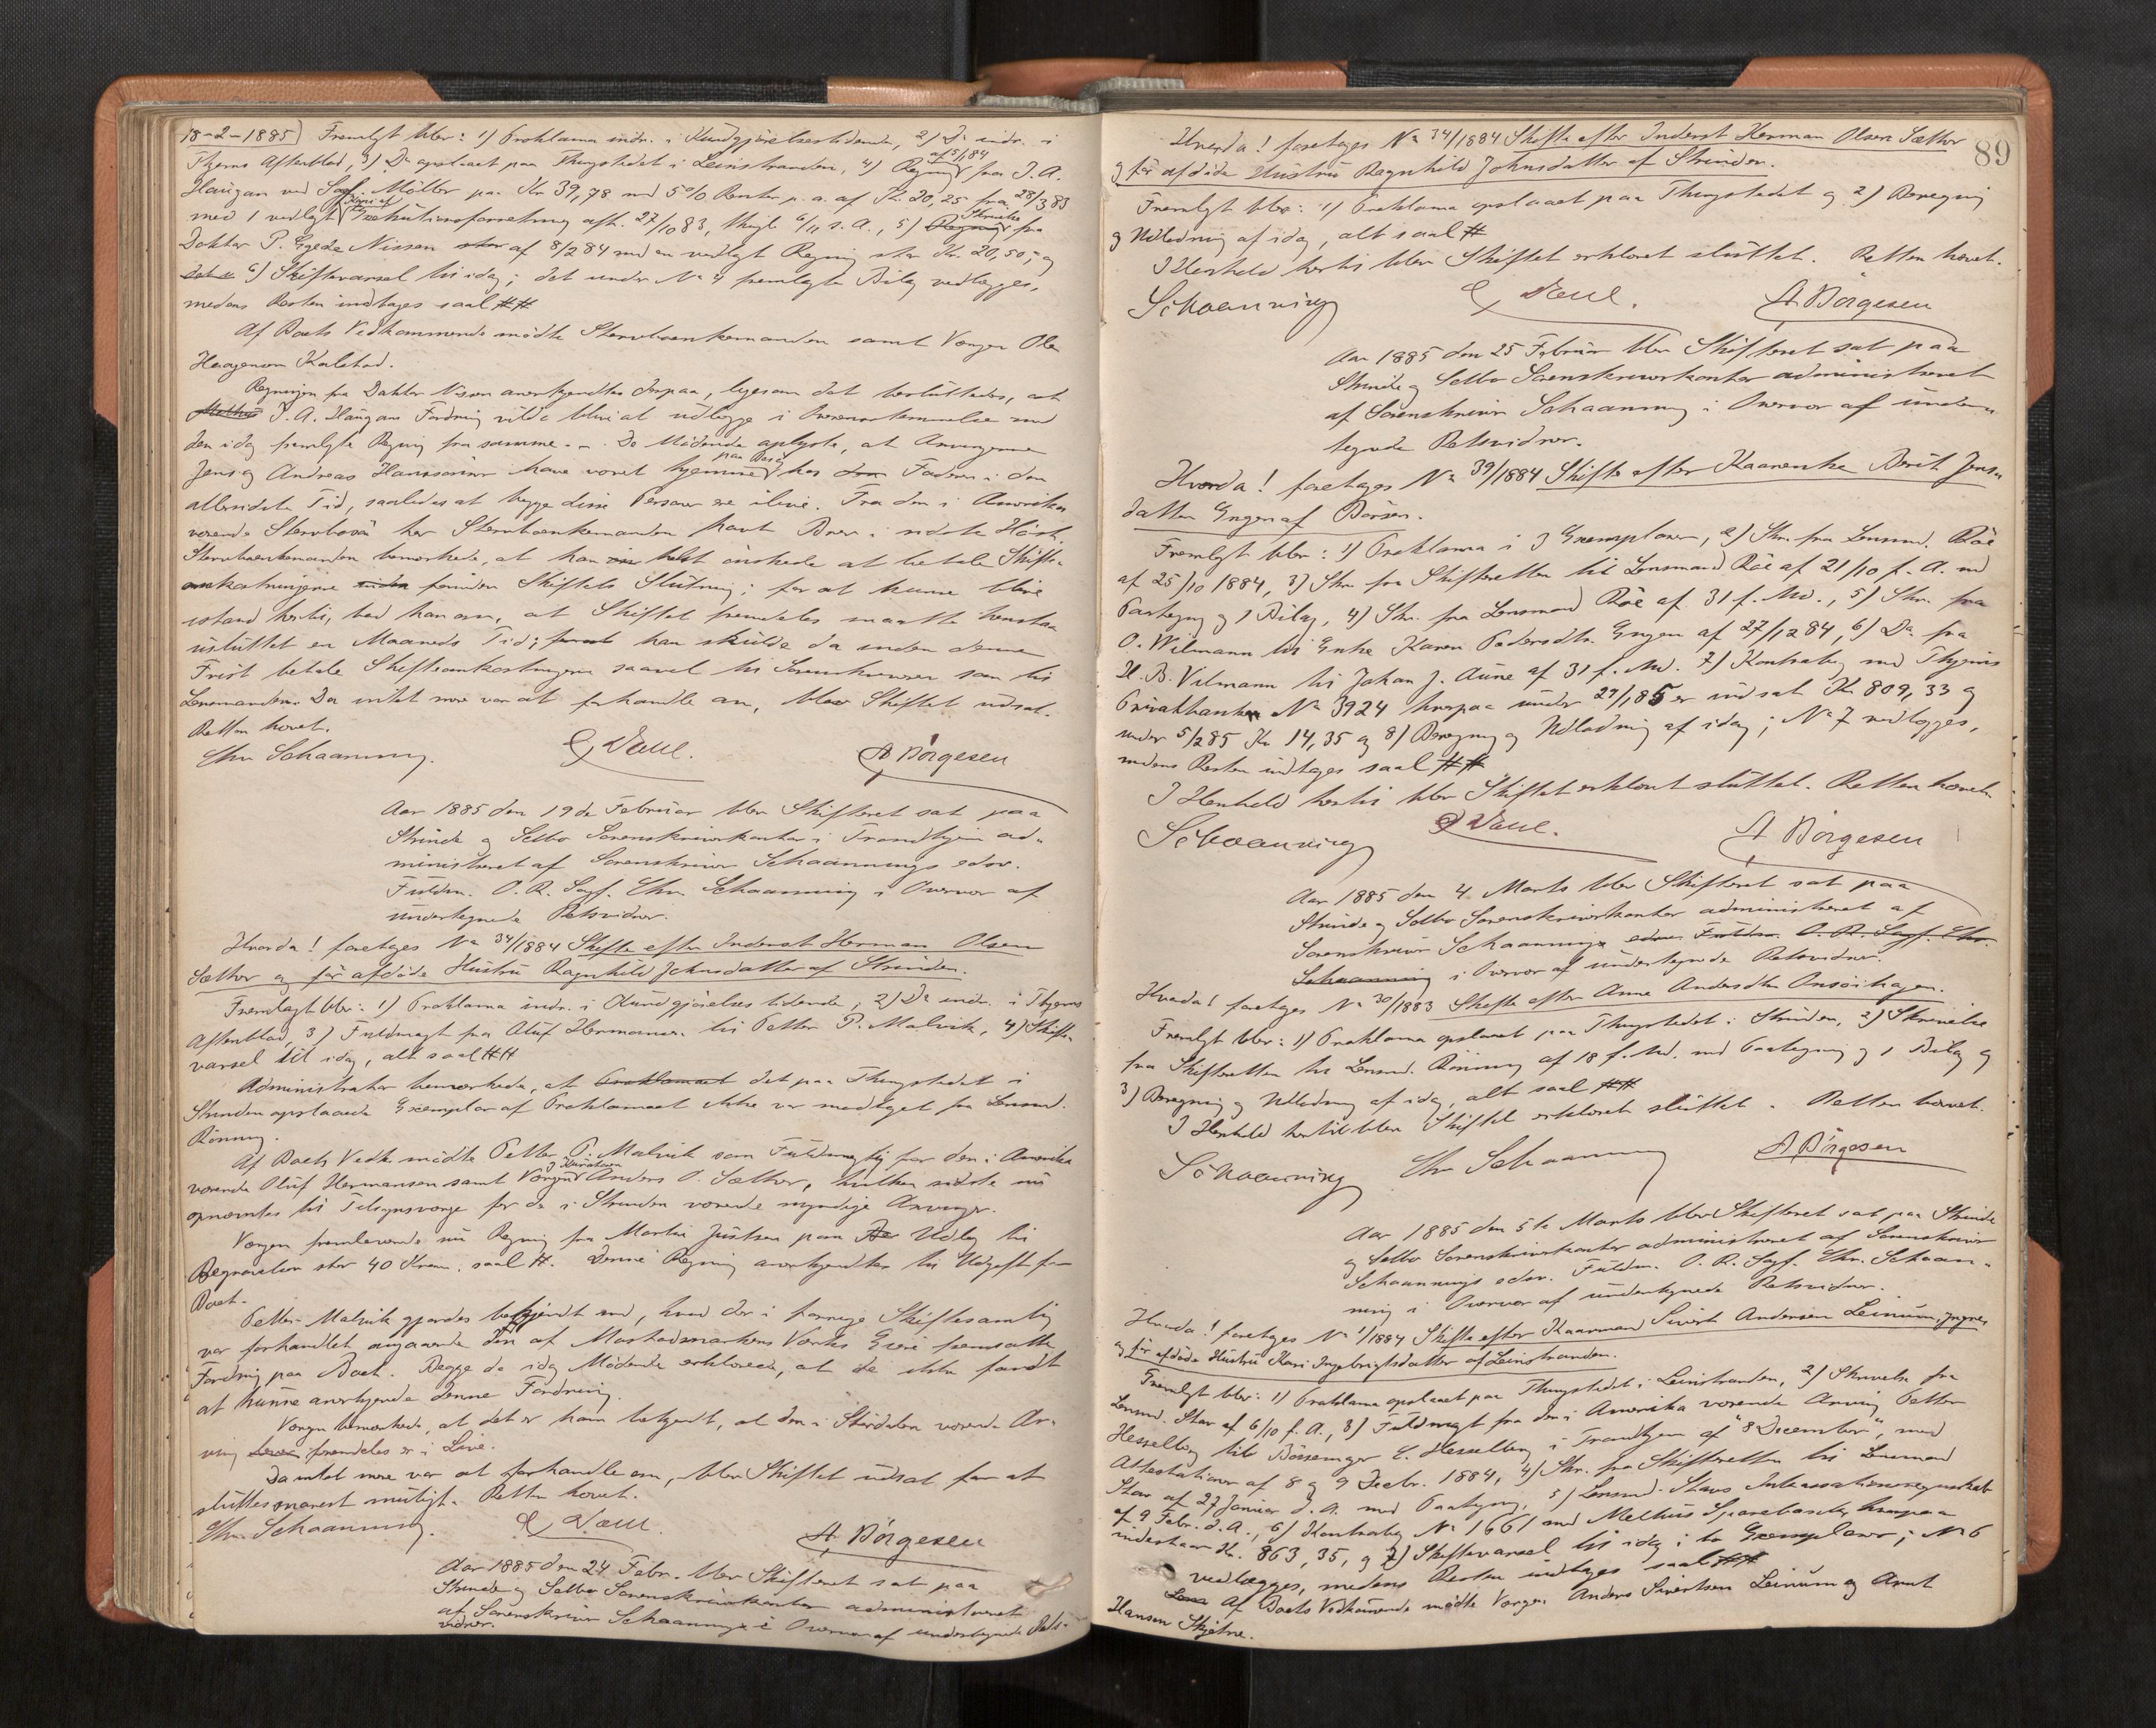 18-2-1885) Fremlagt blev: 1) Proklama indr. i Kundgjörelsestidende, 2) Do indr. i
Thjems Aftenblad, 3) Do opslaaet paa Thingstedet i Leinstranden, 4) Regning af 15/1 84 fra J. A.
Haugan ved Sagf. Möller paa Kr 39,78 med 5% Renter p. a. af Kr. 20,25 fra 28/3 83
med 1 vedlagt Kopi af Exekutionsforretning afh. 27/10 83, thingl. 6/11 s. A., 5) Skrivelse fra
Doktor P. Egede Nissen af 8/2 84 med en vedlagt Regning stor Kr. 20,50, og
6) Skiftevarsel til idag; det under No 4 fremlagte Bilag vedlægges,
medens Resten indtages saal ##
Af Boets Vedkommende mödte Stervboenkemanden samt Værgen Ole
Haagensen Kalstad.
Regningen fra Doktor Nissen anerkjendtes, ligesom det besluttedes, at
J. A. Haugans Fordring vilde blive at udlægge i Overensstemmelse med
den idag fremlagte Regning fra samme. - De Mödende oplyste, at Arvingerne
Jens og Andreas Hanssönner have været hjemme paa Besög hos Faderen i den
allersidste Tid, saaledes at begge disse Personer ere ilive. Fra den i Amerika
værende Stervbosön har Stervboenkemanden havt Brev i sidste Höst.
Stervboenkemanden bemærkede, at han helst önskede at betale Skifte-
omkostningerne forinden Skiftets Slutning; for at kunne blive
istand hertil, bad han om, at Skiftet fremdeles maatte henstaa
usluttet en Maaneds Tid; han skulde da inden denne
Frist betale Skifteomkostningerne saavel til Sorenskriveren som til
Lensmanden. Da intet mere var at forhandle om, blev Skiftet udsat.
Retten hævet.
Chr. Schaanning. E. Paul. A Börgesen
Aar 1885 den 19de Februar blev Skifteret sat paa
Strinde og Selbo Sorenskriverkontor i Trondhjem ad-
ministreret af Sorenskriver Schaannings edsv.
Fuldm. O. R. Sagf. Chr. Schaanning i Overvær af
undertegnede Retsvidner.
Hvorda! foretoges No 34/1884 Skifte efter Inderst Herman Olsen
Sæther og för afdöde Hustru Ragnhild Johnsdatter af Strinden.
Fremlagt blev: 1) Proklama indr. i Kundgjörelsestidende, 2) Do indr. i Thjems
Aftenblad, 3) Fuldmagt fra Oluf Hermansen til Petter P. Malvik, 4) Skifte-
varsel til idag, alt saal ##
Administrator bemærkede, at det paa Thingstedet i
Strinden opslaaede Exemplar af Proklamaet ikke var modtaget fra Lensmd.
Rönning.
Af Boets Vedk. mödte Petter P. Malvik som Fuldmægtig for den i Amerika
værende Oluf Hermansen samt Værgen Anders O. Sæther, hvilken sidste nu
opnævntes til Tilsynsværge for de i Strinden værende myndige Arvinger.
Værgen fremleverede nu Regning fra Martin Justsen paa Udlæg til
Begravelsen stor 40 Kroner, saal #. Denne Regning anerkjendtes til Udgift for
Boet.
Petter Malvik gjordes bekjendt med, hvad der i forrige Skiftesamling
var forhandlet angaaende den af Mostadmarkens Værks Eiere fremsatte
Fordring paa Boet. Begge de idag Mödende erklærede, at de ikke fandt
at kunne anerkjende denne Fordring.
Værgen bemærkede, at det er ham bekjendt, at den i Stördalen værende Ar-
ving fremdeles er i Live.
Da intet mere var at forhandle om, blev Skiftet udsat for at
sluttes snarest muligt. Retten hævet.
Chr. Schaanning. E. Paul. A. Börgesen
Aar 1885 den 24 Febr. blev Skifteret sat paa
Strinde og Selbo Sorenskriverkontor administreret
af Sorenskriver Schaanning i Overvær af undertegnede Rets-
vidner.
89
Hvorda! foretoges No 34/1884 Skifte efter Inderst Herman Olsen Sæther
og för afdöde Hustru Ragnhild Johnsdatter af Strinden.
Fremlagt blev: 1) Proklama opslaaet paa Thingstedet og 2) Beregning
og Udlodning af idag, alt saal #
I Henhold hertil blev Skiftet erklæret sluttet. Retten hævet.
Schaanning E. Paul. A Börgesen
Aar 1885 den 25 Februar blev Skifteret sat paa
Strinde og Selbo Sorenskriverkontor administreret
af Sorenskriver Schaanning i Overvær af under-
tegnede Retsvidner.
Hvorda! foretoges No 39/1884 Skifte efter Kaarenke Berit Jens-
datter Engen af Börsen.
Fremlagt blev: 1) Proklama i 3 Exemplarer, 2) Skr. fra Lensmd. Röe
af 25/10 1884, 3) Skr. fra Skifteretten til Lensmand Röe af 21/10 f. A. med
Paategning og 1 Bilag, 4) Skr. fra Lensmand Röe af 31 f. Md., 5) Skr. fra
O. Wilmann til Enke Karen Pedersdtr. Engen af 27/12 84, 6) Do fra
H. B. Vilmann til Johan J. Aune af 31 f. Md. 7) Kontrabog med Thjems
Privatbank No 3924 hvorpaa under 29/1 85 er indsat Kr 809,33 og
under 5/2 85 Kr 14,35 og 8) Beregning og Udlodning af idag; No 7 vedlægges,
medens Resten indtages saal ##
I Henhold hertil blev Skiftet erklæret sluttet. Retten hævet.
Schaanning E. Paul. A Börgesen
Aar 1885 den 4 Marts blev Skifteret sat paa
Strinde og Selbo Sorenskriverkontor administreret af
Sorenskriver Schaanning edsv. Fuldm. O. R. Sagf. Chr.
Schaanning i Overvær af undertegnede Retsvidner.
Hvorda! foretoges No 30/1883 Skifte efter Anne Andersdtr Onsöihagen.
Fremlagt blev: 1) Proklama opslaaet paa Thingstedet i Strinden, 2) Skrivelse
fra Skifteretten til Lensmd. Rönning af 18 f. Md. med Paategning og 1 Bilag og
3) Beregning og Udlodning af idag, alt saal ##
I Henhold hertil blev Skiftet erklæret sluttet. Retten hævet.
Schaanning Chr Schaanning A Börgesen
Aar 1885 den 5te Marts blev Skifteret sat paa Strinde
og Selbo Sorenskriverkontor administreret af Sorenskriver
Schaannings edsv. Fuldm. O. R. Sagf. Chr. Schaan-
ning i Overvær af undertegnede Retsvidner.
Hvorda! foretoges No 1/1884 Skifte efter Kaarmand Sivert Andersen Leinum,
og för afdöde Hustru Kari Ingebrigtsdatter af Leinstranden.
Fremlagt blev: 1) Proklama opslaaet paa Thingstedet i Leinstranden, 2) Skrivelse fra
Lensmd. Stav af 6/10 f. A., 3) Fuldmagt fra den i Amerika værende Arving Petter
Hesselberg til Bössemager E. Hesselberg i Trondhjem af "8 December", med
Attestationer af 8 og 9 Decbr. 1884, 4) Skr. fra Skifteretten til Lensmand
Stav af 27 Januar d. A. med Paategning, 5) Lensmd. Stavs Inkassationsregnskab
af 9 Febr. d. A., 6) Kontrabog No 1661 med Melhus Sparebank, hvorpaa
indestaar Kr. 863,35, og 7) Skiftevarsel til idag i to Exemplarer; No 6
vedlægges, medens Resten indtages saal ##
Af Boets Vedkommende mödte Værgen Anders Sivertsen Leinum og Arnt
Hansen Skjetne.